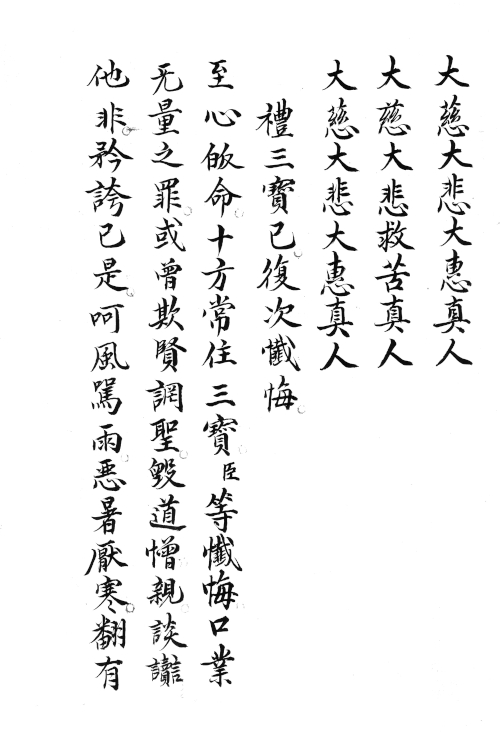 大慈大悲大惠真人
大慈大悲救苦真人
大慈大悲大惠真人
禮三寶已復次懺悔
至心皈命十方常住三寶臣等懺悔口業
无量之罪或噌欺賢調聖毀道憎親談讟
他非矜誇已是呵風罵雨惡暑厭寒翻有